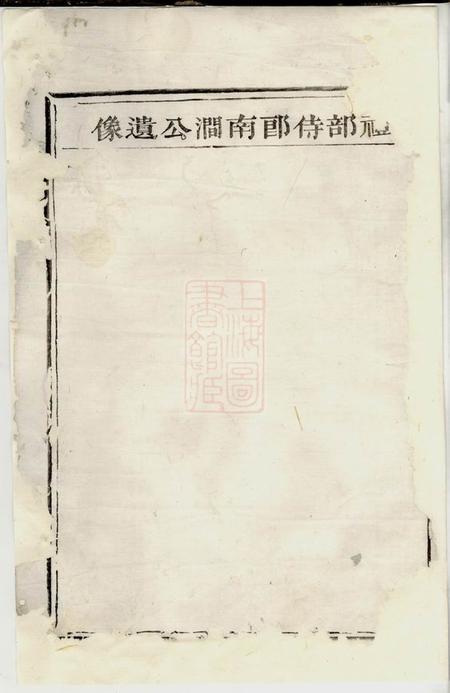 礼部侍郎南澗公遺像
上海圖
書館藏